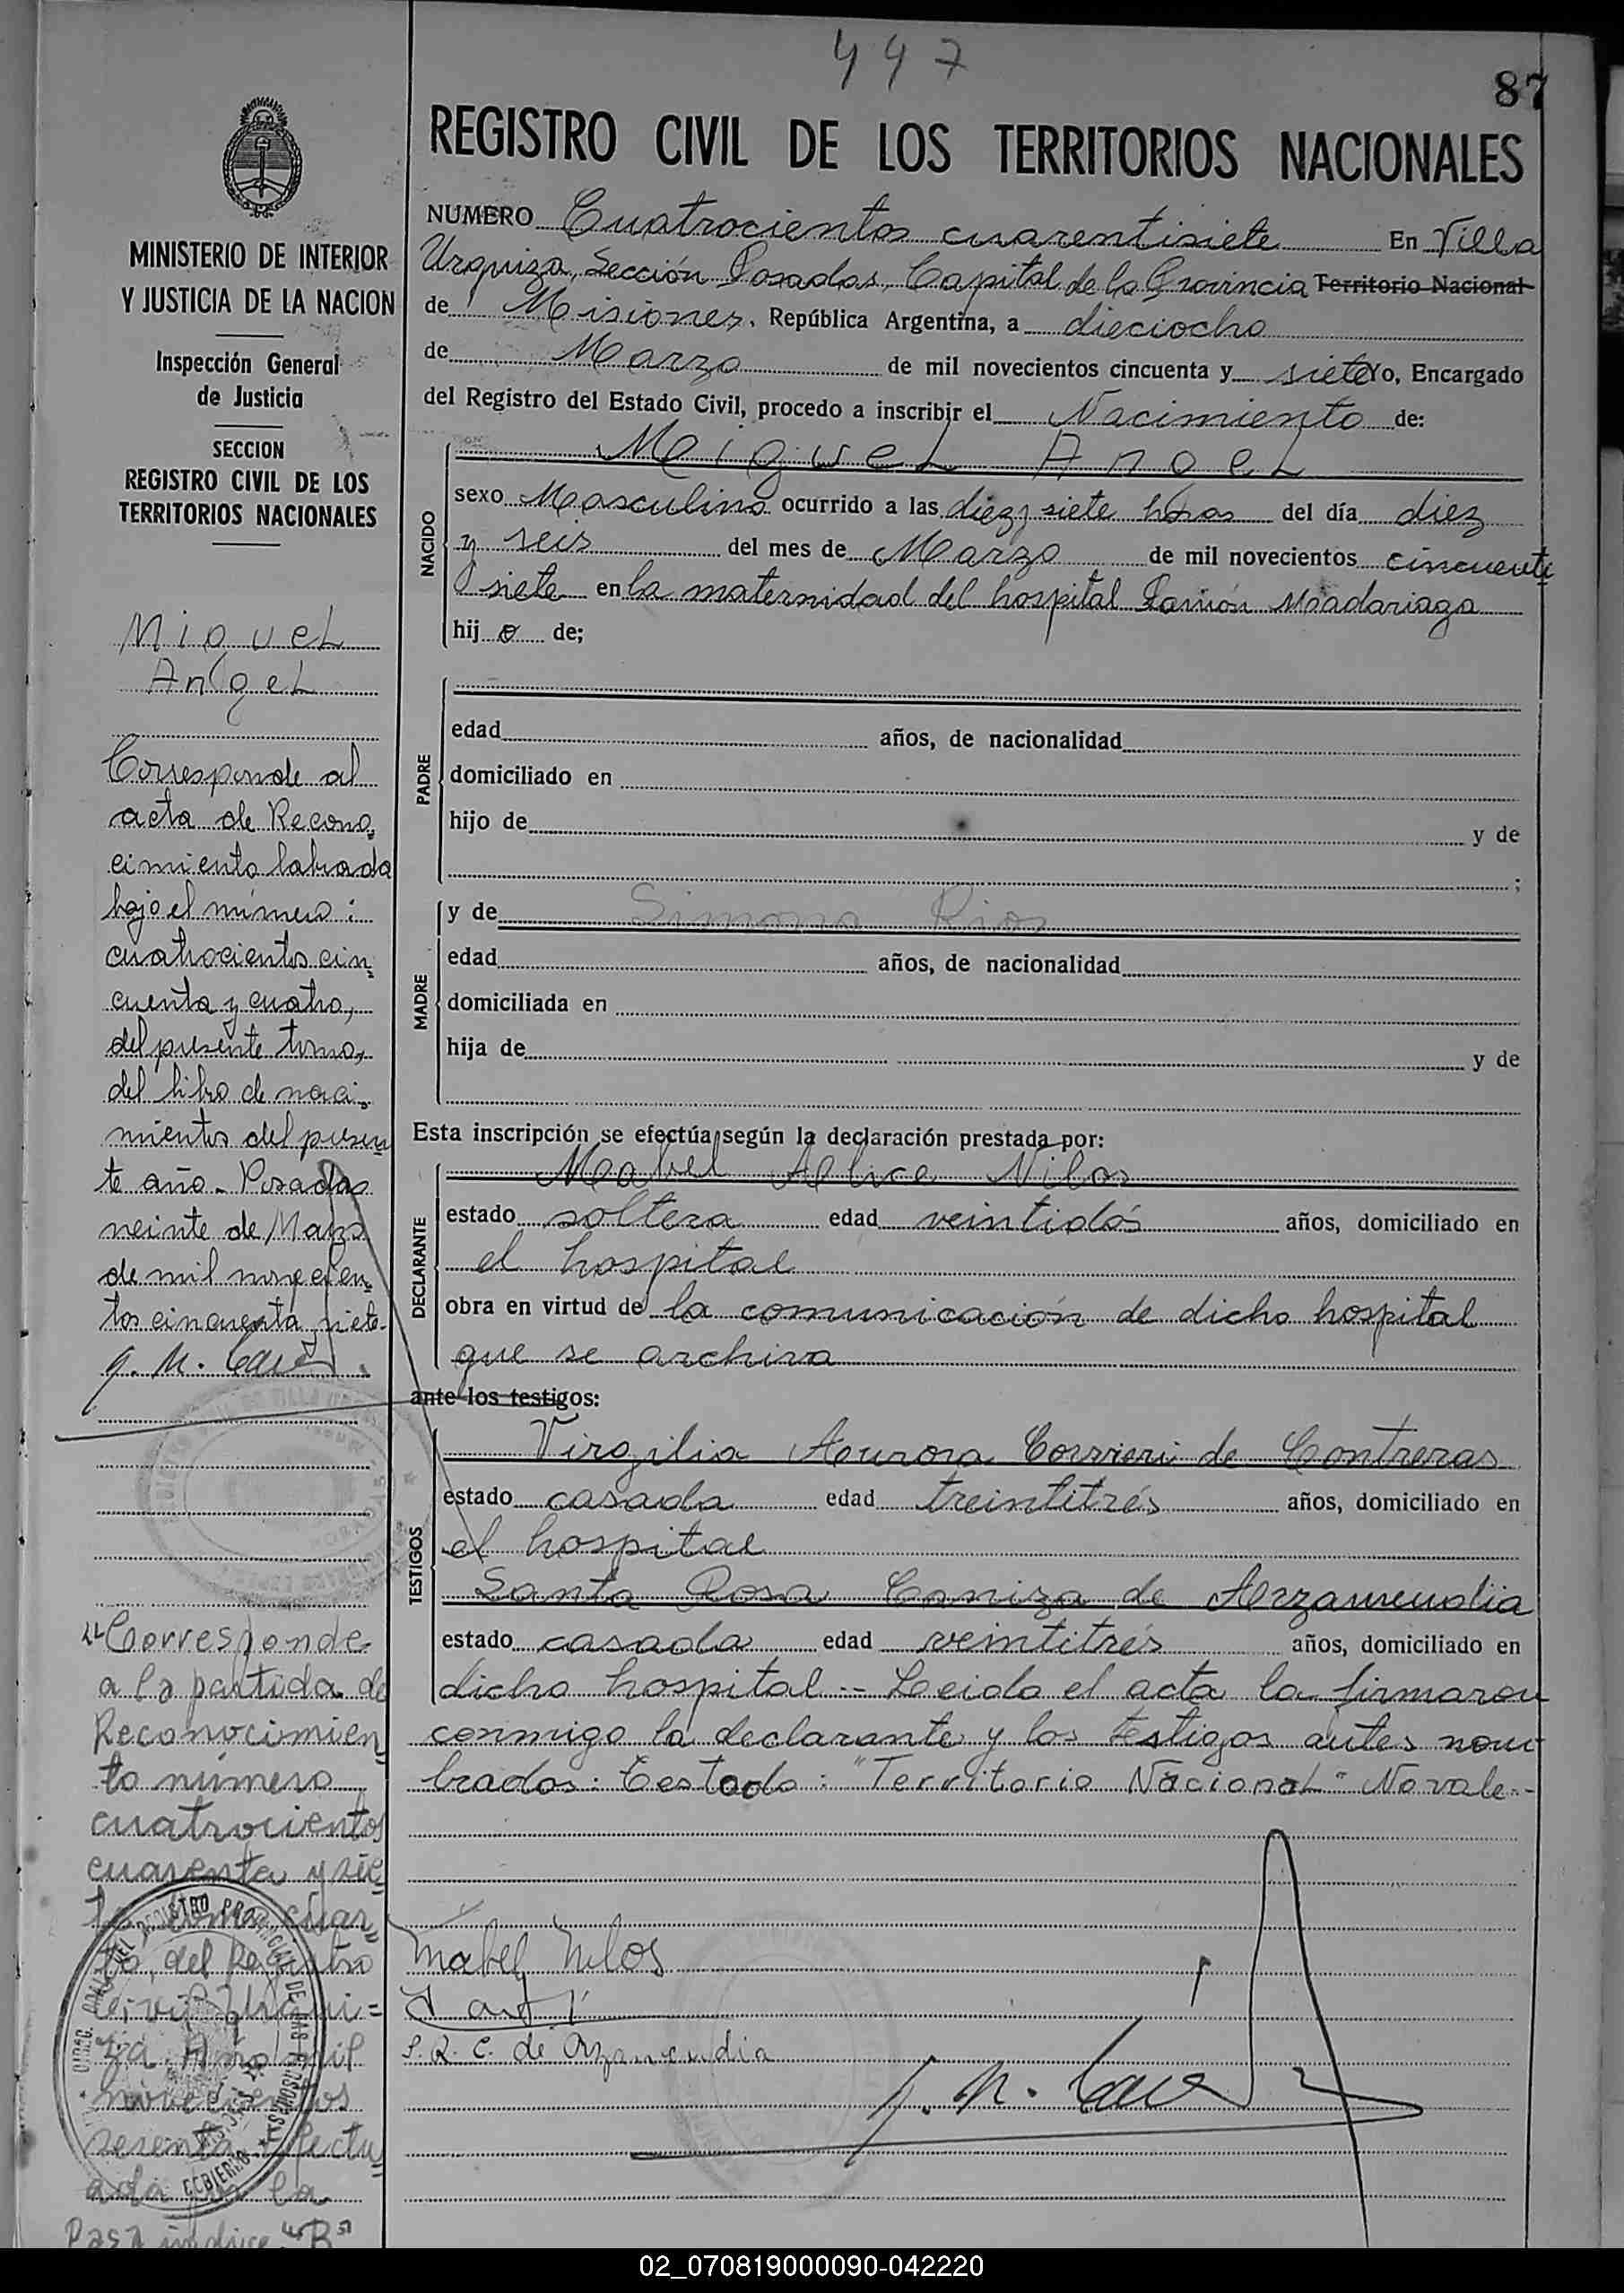 447
87
REGISTRO CIVIL DE LOS TERRITORIOS NACIONALES
MINISTERIO DE INTERIOR
Y JUSTICIA DE LA NACION
Inspección General
de Justicia
SECCION
REGISTRO CIVIL DE LOS
TERRITORIOS NACIONALES
Miguel
Angel
Corresponde al
acta de Recono
cimiento labrada
bajo el número:
cuatrocientos cin
cuenta y cuatro,
del presente tomo,
del libro de naci
mientos del presen
te año - Posadas
veinte de Marzo
de mil novecien
tos cincuenta y siete-
"Corresponde
a la partida de
Reconocimien
to número
cuatrocientos
cuarenta y sie
to, del Registro
mil
novecientos
la
Pasa indice "B"
NUMERO Cuatrocientos cuarentisiete En Villa
Urquiza, Sección Posadas, Capital de la Provincia Territorio Nacional
de Misiones. República Argentina, a dieciocho
de Marzo de mil novecientos cincuenta y siete Yo, Encargado
del Registro del Estado Civil, procedo a inscribir el Nacimiento de:
NACIDO
Miguel Angel
sexo Masculino ocurrido a las diez y siete horas del día diez
y seis del mes de Marzo de mil novecientos cincuenti
siete en la maternidad del hospital Ramón Madariaga
hij o de;
PADRE
edad años, de nacionalidad
domiciliado en
hijo de y de
;
MADRE
y de Simona Rios
edad años, de nacionalidad
domiciliada en
hija de y de
Esta inscripción se efectúa según la declaración prestada por:
DECLARANTE
Mabel Alice Nilos
estado soltera edad veintidós años, domiciliado en
el hospital
obra en virtud de la comunicación de dicho hospital
que se archiva
ante los testigos:
TESTIGOS
Virgilia Aurora Corrieri de Contreras
estado casada edad treintitrés años, domiciliado en
el hospital
Santa Rosa Caniza de Arzamendia
estado casada edad veintitrés años, domiciliado en
dicho hospital -- Leida el acta la firmaron
conmigo la declarante y los testigos antes nom
brados: Testado: "Territorio Nacional" No vale.-
Mabel Nilos
S. R. C. de Arzamendia
02_070819000090-042220